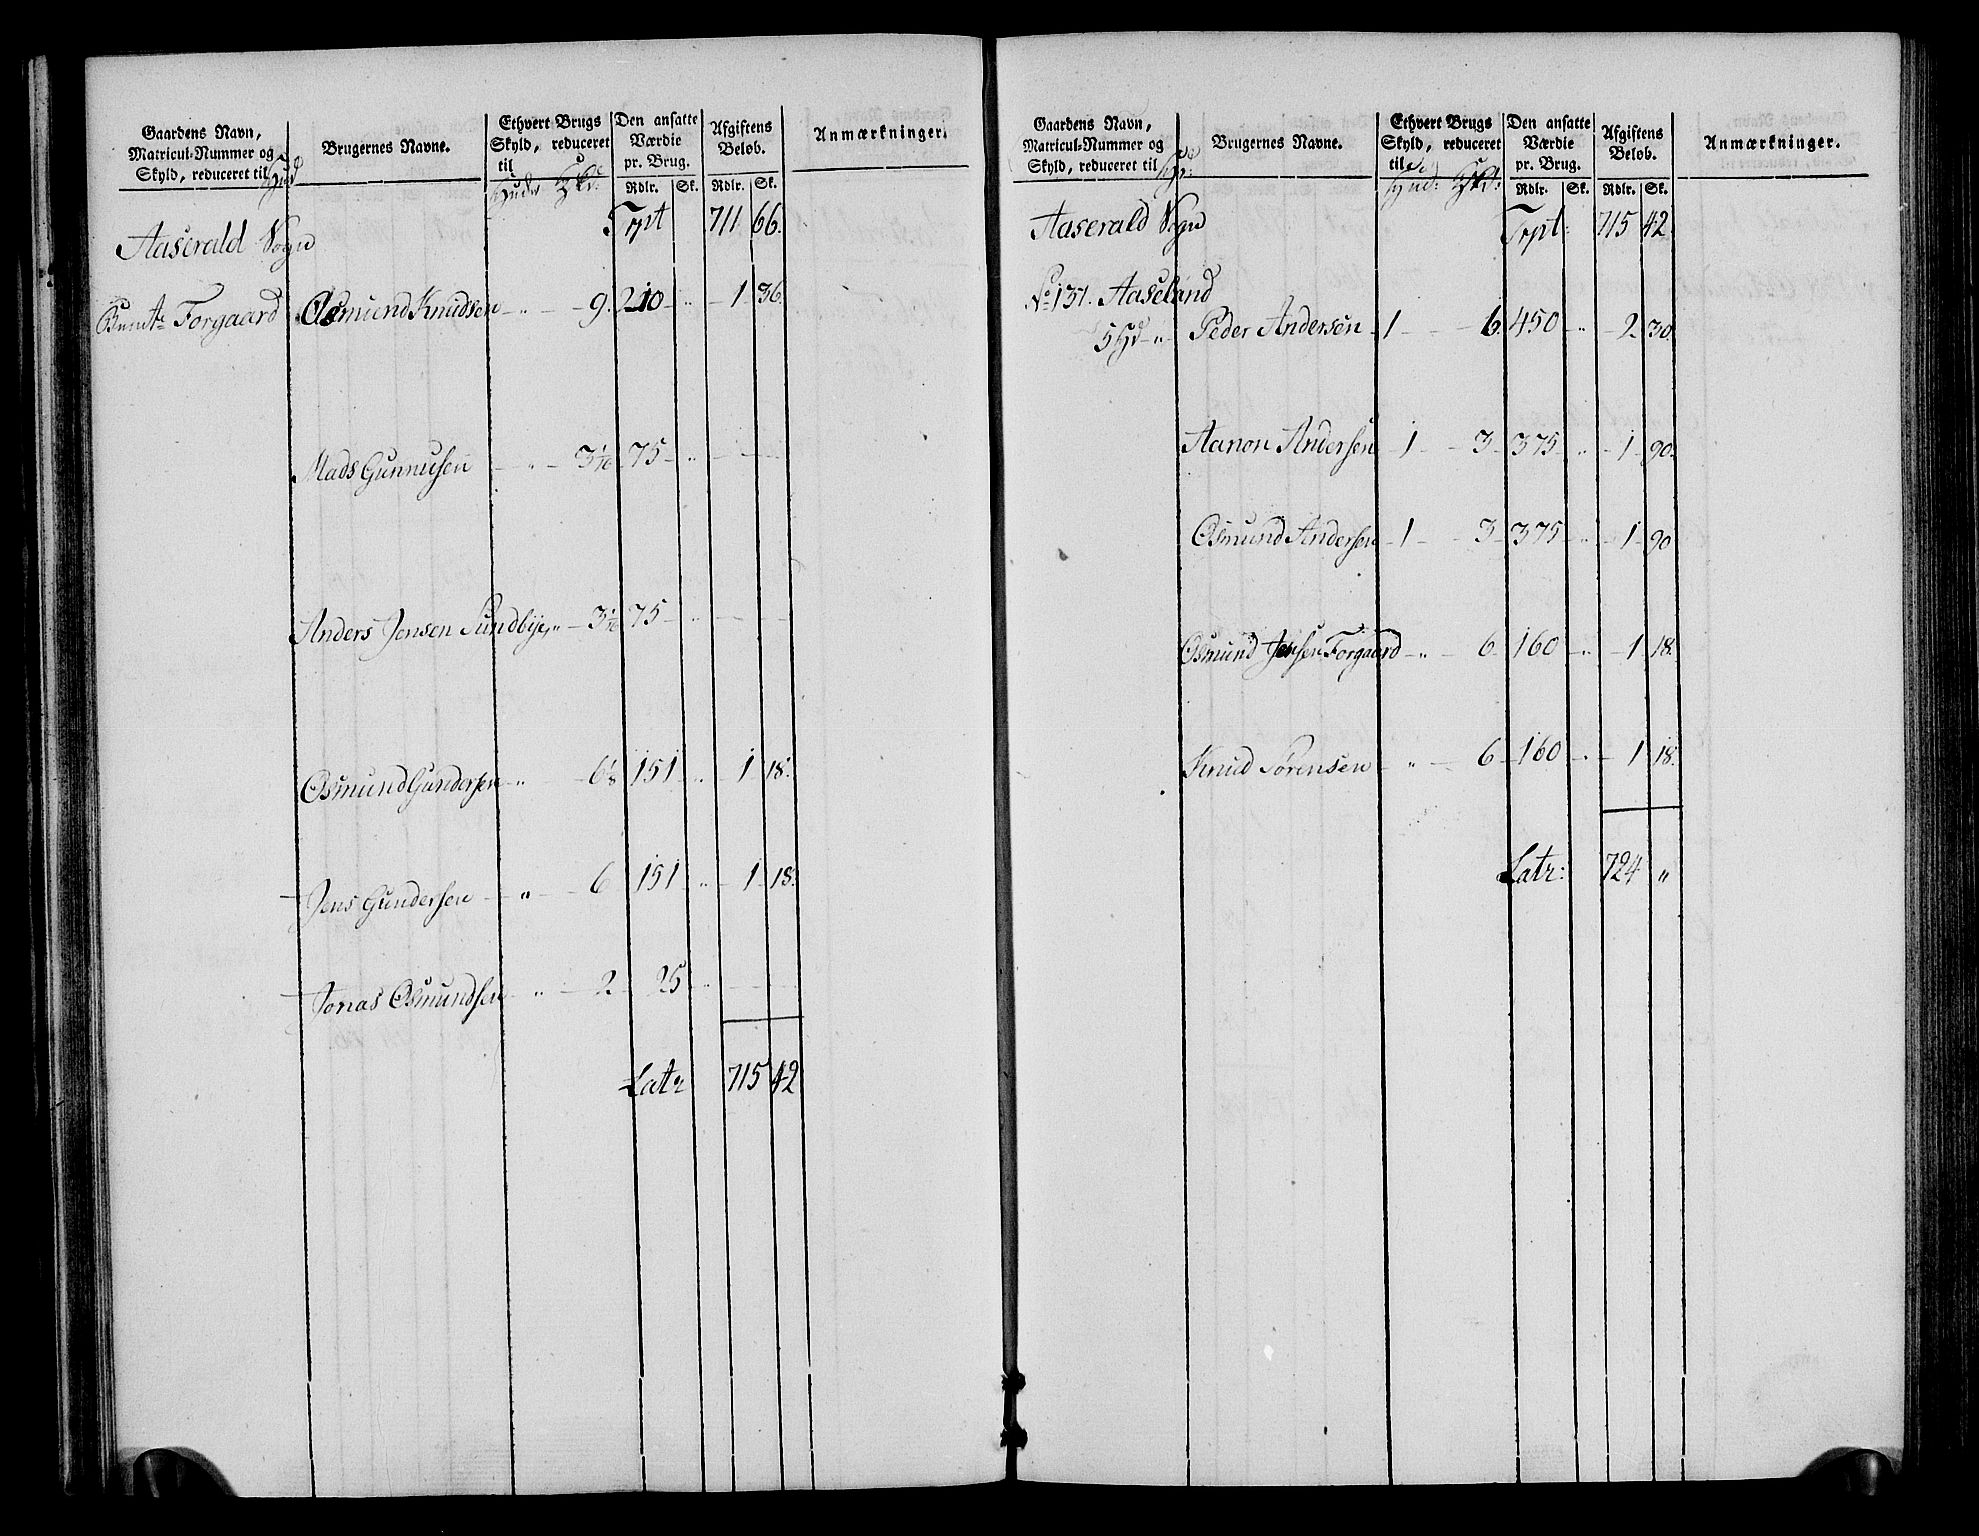 Gaardens Navn, Matricul-Nummer og Skyld, reduceret til Hud
Brugernes Navne.
Ethvert Brugs Skyld, reduceret til Huder Skd:
Den ansatte Værdie pr. Brug. Rdlr. Sk.
Afgiftens Beløb. Rdlr. Sk.
Anmærkninger.
Aaserald Sogn Trpt 711 66.
Forgaard Osmund Knudsen - " - 9. 210 " 1 36.
Mads Gunnusen - " - 3 1/16 75 " - -
Anders Jensen Sundbye " - 3 1/16 75 " - -
Osmund Gundersen - " - 6 1/8 151 " 1 18.
Jens Gundersen - " - 6 151 " 1 18.
Jonas Osmundsen - " - 2 25 " - -
Latr 715 42
Gaardens Navn, Matricul-Nummer og Skyld, reduceret til
Brugernes Navne.
Ethvert Brugs Skyld, reduceret til Hud: Skd:
Den ansatte Værdie pr. Brug. Rdlr. Sk.
Afgiftens Beløb. Rdlr. Sk.
Anmærkninger.
Aaserald Sogn Trpt: 715 42.
No 137. Aaseland
5 Hd - " - Peder Andersen 1 - 6. 450 " 2 30.
Aanon Andersen 1 - 3 375 " 1 90.
Osmund Andersen 1 - 3 375 " 1 90
Osmund Jensen Forgaard - " - 6 160 " 1 18.
Knud Sørensen - " - 6 160 " 1 18.
Latr: 724 "